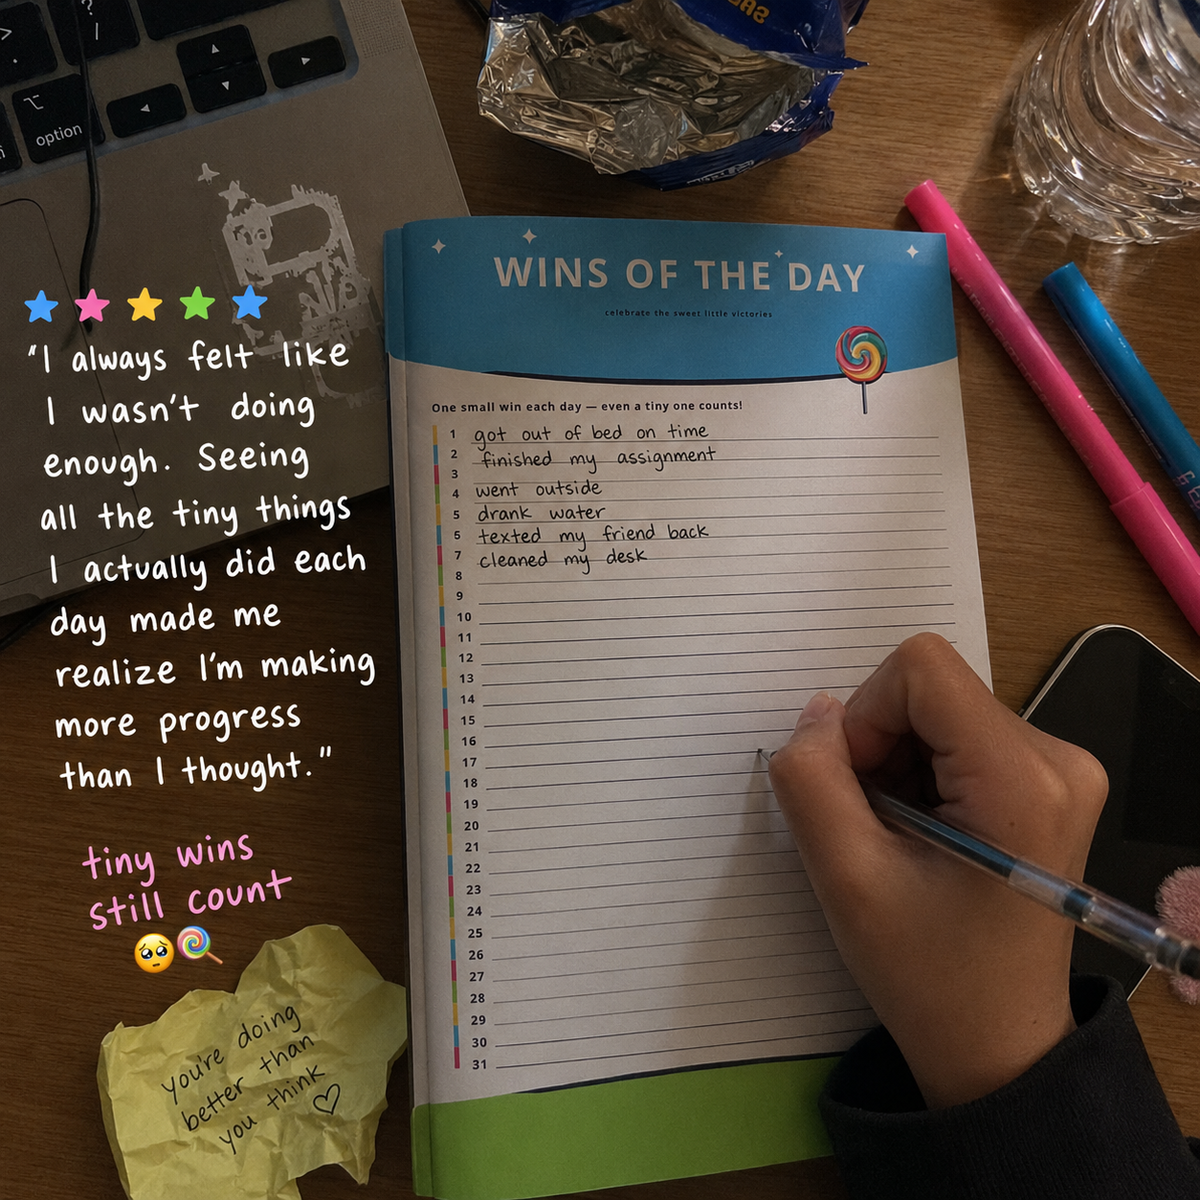 ? /
> .
⌥
option
WINS OF THE DAY
celebrate the sweet little victories
One small win each day — even a tiny one counts!
1 got out of bed on time
2 finished my assignment
3
4 went outside
5 drank water
5 texted my friend back
7 cleaned my desk
8
9
10
11
12
13
14
15
16
17
18
19
20
21
22
23
24
25
26
27
28
29
30
31
"I always felt like
I wasn't doing
enough. Seeing
all the tiny things
I actually did each
day made me
realize I'm making
more progress
than I thought."
tiny wins
still count
🥺🍭
you're doing
better than
you think ♡